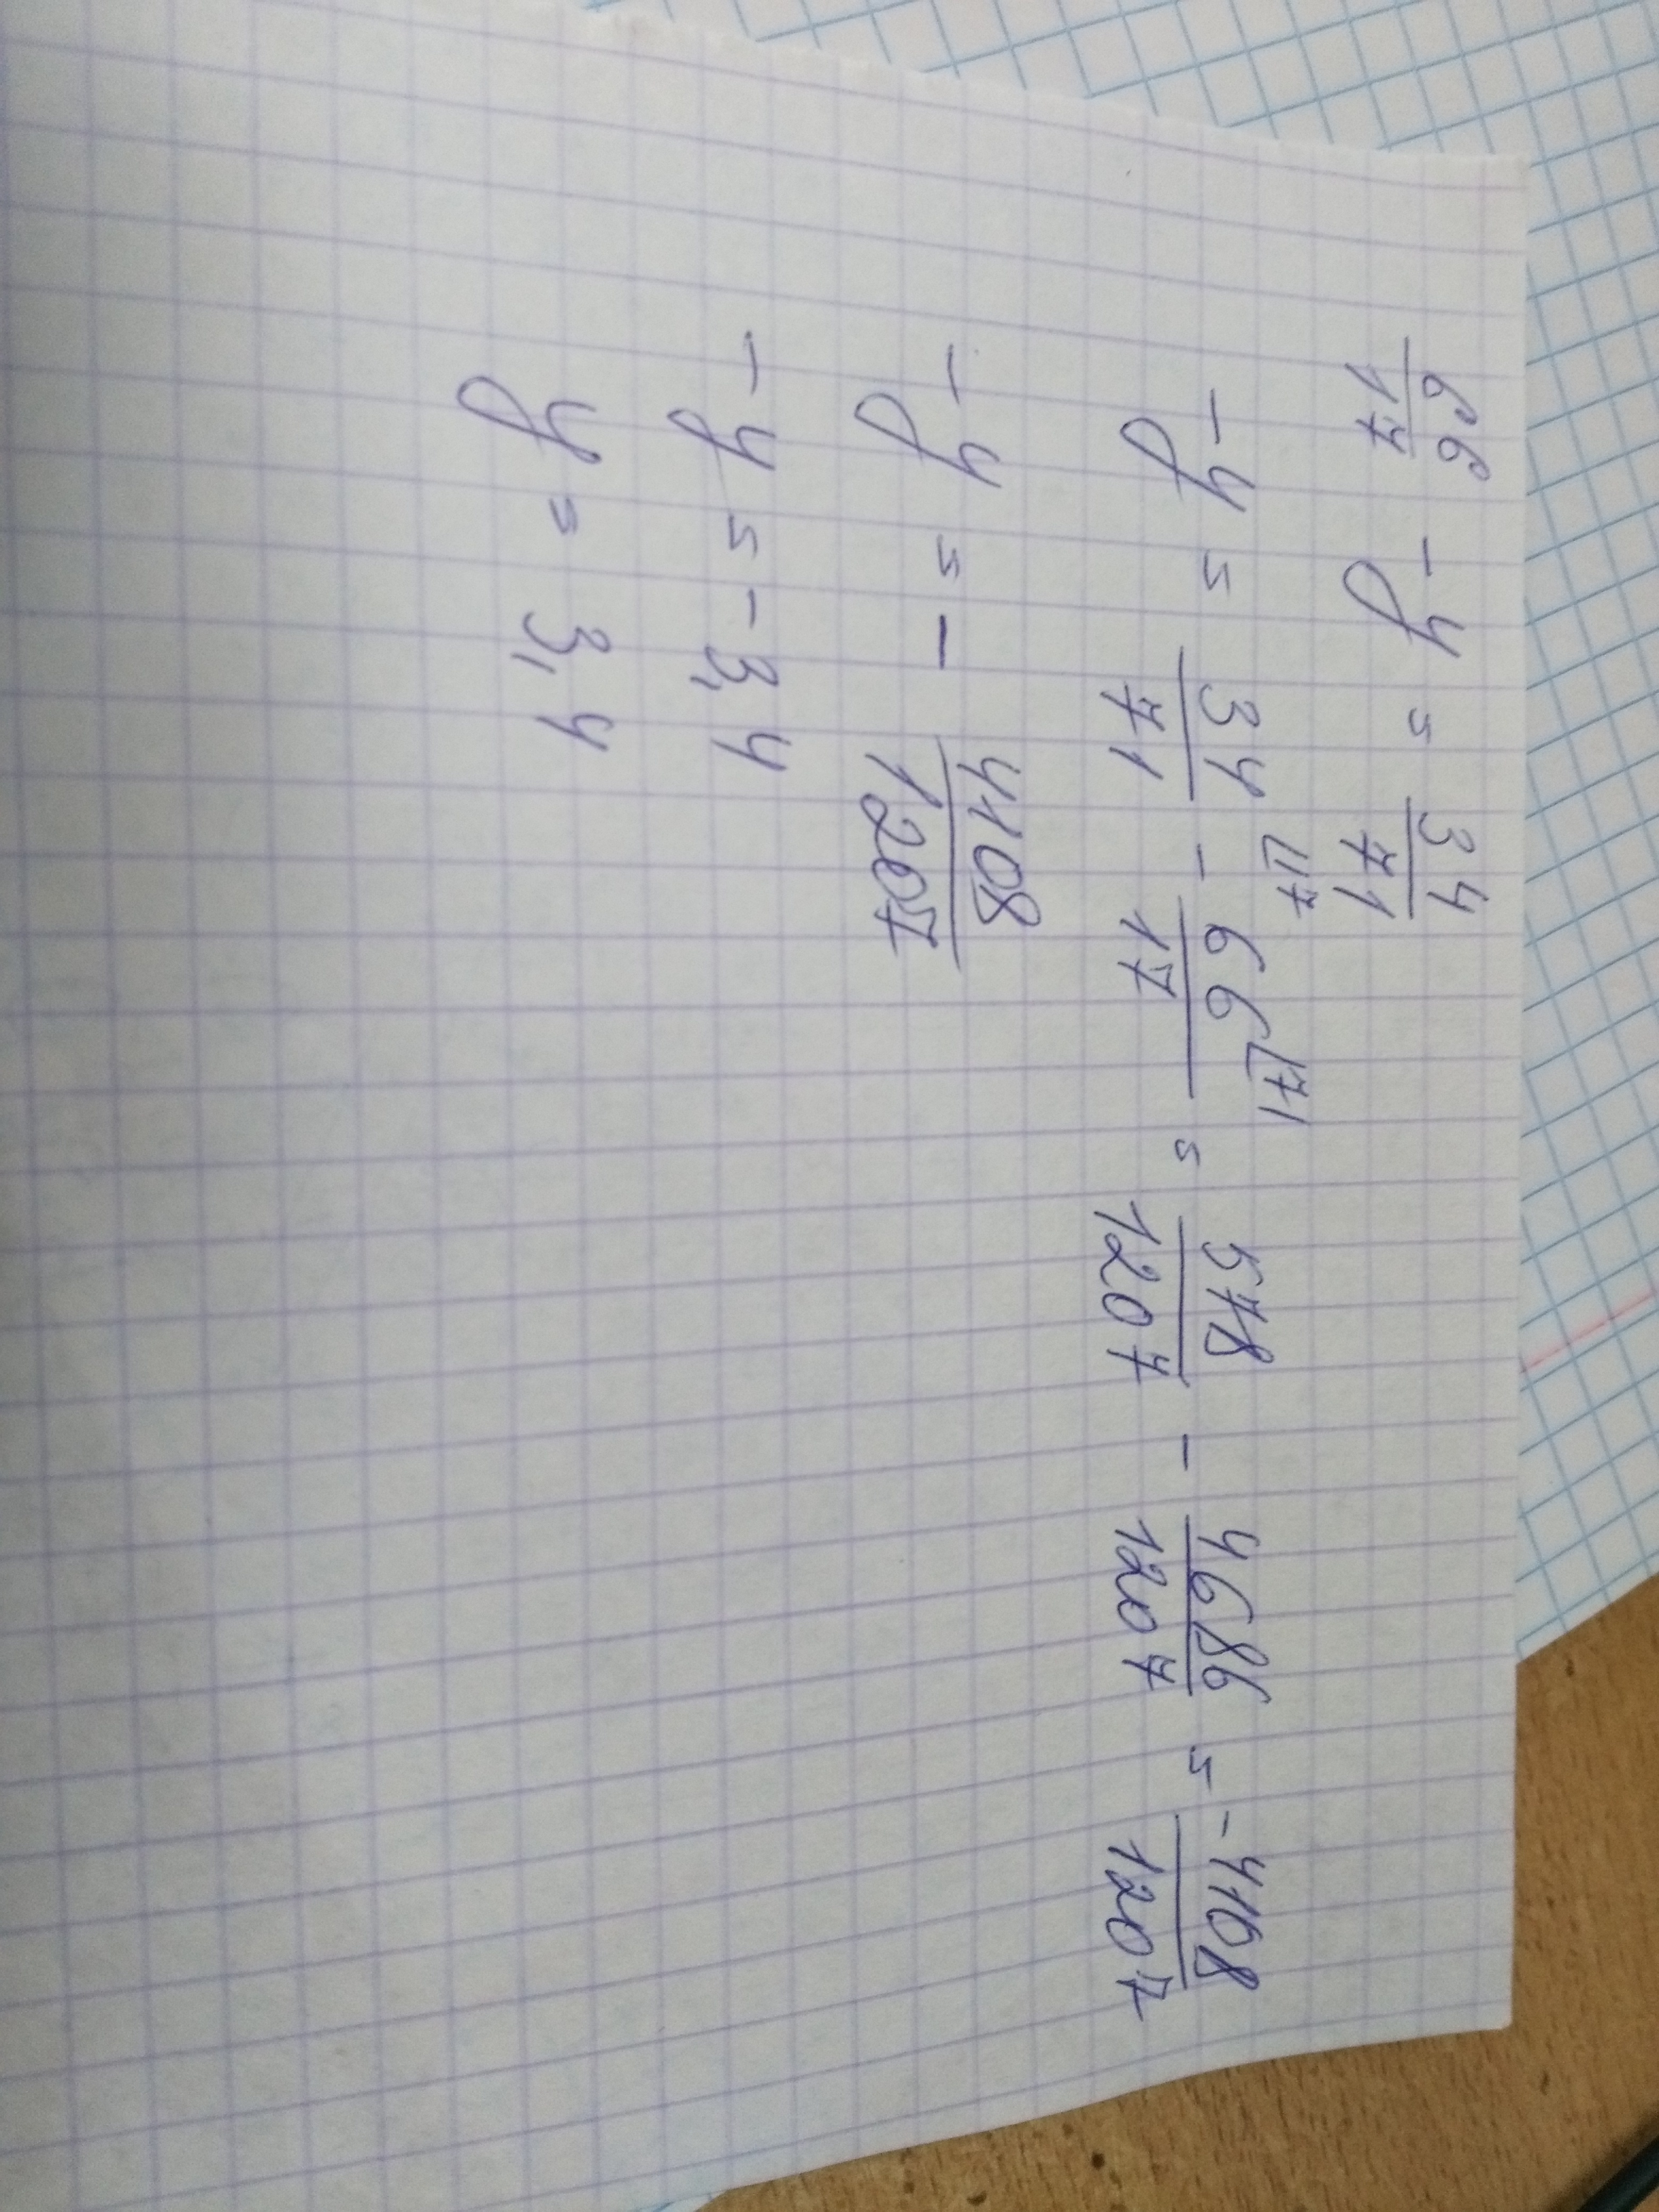 66/17 - y = 34/71
-y = 34/71 ⌊17 - 66/17 ⌊71 = 578/1207 - 4686/1207 = -4108/1207
-y = - 4108/1207
-y = -3,4
y = 3,4